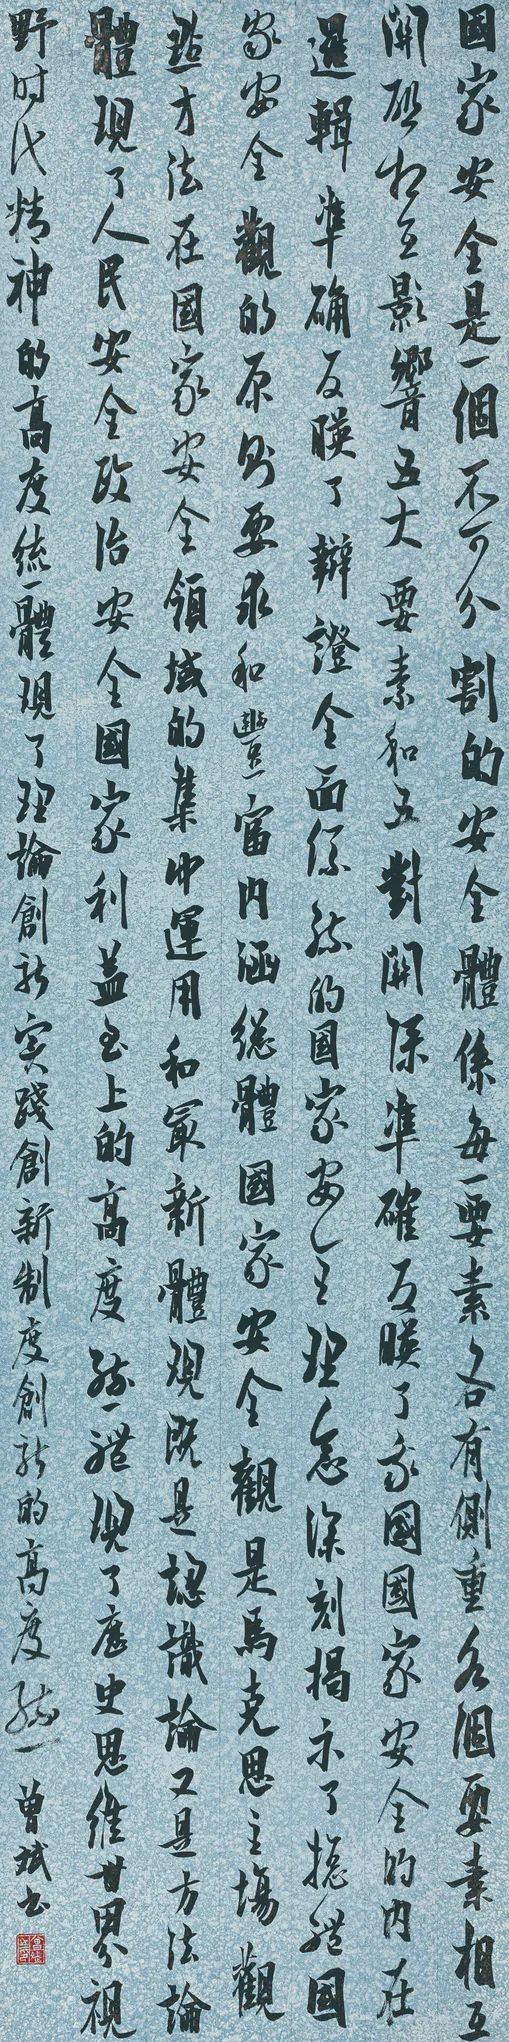 國家安全是一個不可分割的安全體係每一要素各有側重各個要素相互
關聯相互影響五大要素和五對關係準確反映了我國國家安全的内在
邏輯準确反映了辯證全面系統的國家安全理念深刻揭示了總體國
家安全觀的原則要求和豐富内涵總體國家安全觀是馬克思主場觀
點方法在國家安全領域的集中運用和最新體現既是認識論又是方法論
體現了人民安全政治安全國家利益至上的高度統一體現了歷史思維世界視
野时代精神的高度統一體現了理論創新实踐創新制度創新的高度統一 曾斌书